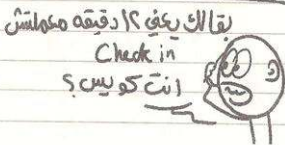 بقالك يعني ١٢ دقيقه معملتش
Check in
انت كويس؟